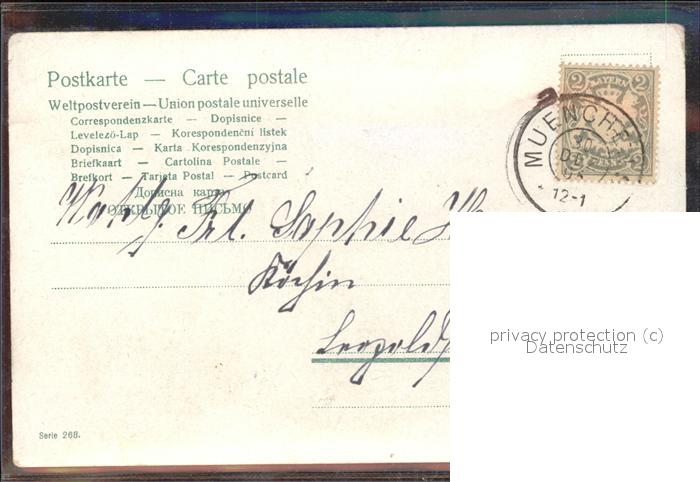 Postkarte — Carte postale
Weltpostverein — Union postale universelle
Correspondenzkarte — Dopisnice —
Levelező-Lap — Korespondenční listek
Dopisnica — Karta Korespondenzyjna
Briefkaart — Cartolina Postale —
Brefkort — Tarjeta Postal — Postcard
Дописна карта
ОТКРЫТОЕ ПИСЬМО
2 BAYERN 2
MUENCHE
12-1
Frl. Sophie
Köchin
Leopolds
privacy protection (c)
Datenschutz
Serie 268.